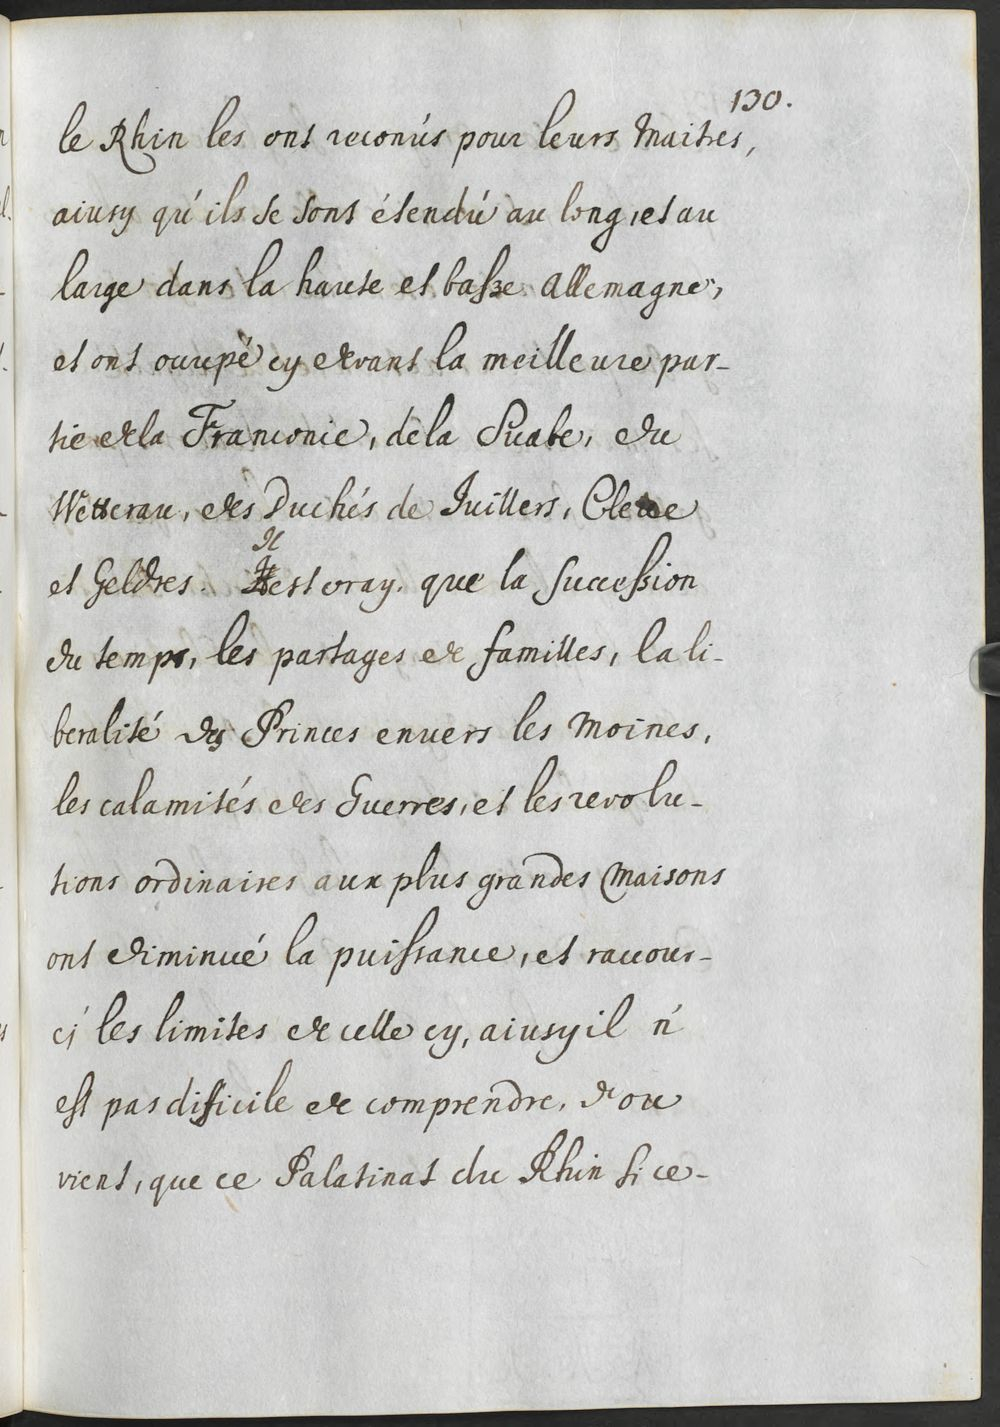 130.
le Rhin les ont reconús pour leurs Maitres,
ainsy qú ils se sont étendú au long, et au
large dans la haute et basse Allemagne,
et ont occupé cy devant la meilleure par-
tie de la Franconie, de la Suabe, du
Wetterau, des Duchés de Juillers, Cleve
et Geldres. Il est vray. que la succession
du temps, les partages de familles, la li-
beralité des Princes envers les Moines,
les calamités des Guerres, et les revolu-
tions ordinaires aux plus grandes Maisons
ont diminué la puissance, et raccour-
ci les limites de celle cy, ainsy il n'
est pas difficile de comprendre, d'ou
vient, que ce Palatinat du Rhin si ce-